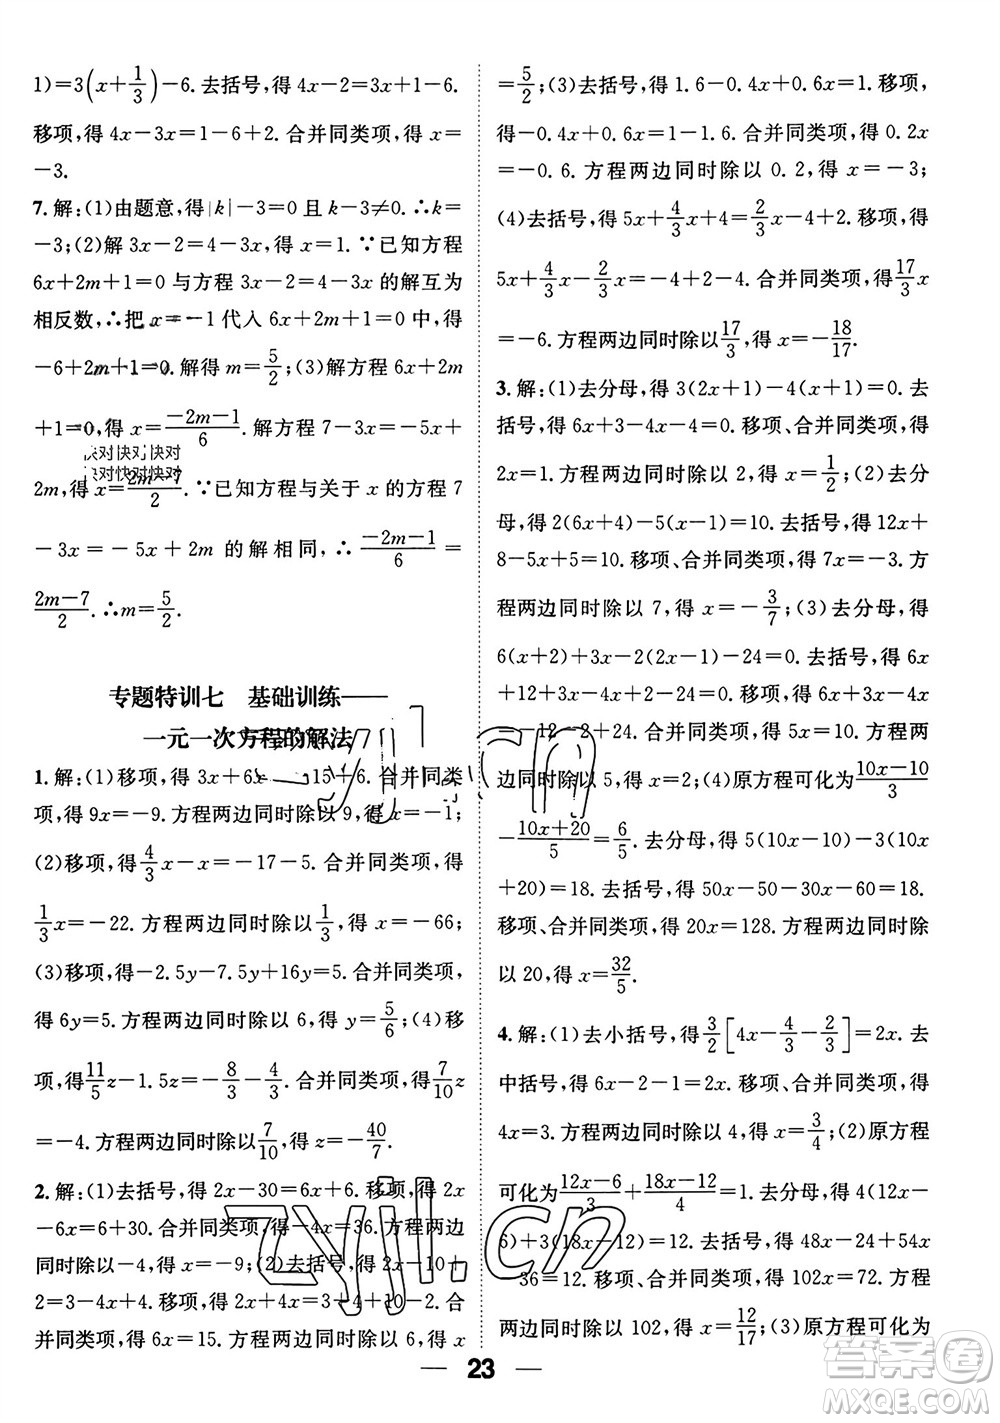 1)=3(x+1/3)-6. 去括号,得 4x-2=3x+1-6.
移项,得 4x-3x=1-6+2. 合并同类项,得 x=
-3.
7. 解:(1)由题意,得|k|-3=0 且 k-3≠0. ∴k=
-3;(2)解 3x-2=4-3x,得 x=1. ∵已知方程
6x+2m+1=0 与方程 3x-2=4-3x 的解互为
相反数,∴把 x=-1 代入 6x+2m+1=0 中,得
-6+2m+1=0. 解得 m=5/2;(3)解方程 6x+2m
+1=0,得 x=(-2m-1)/6. 解方程 7-3x=-5x+
2m,得 x=(2m-7)/2. ∵已知方程与关于 x 的方程 7
-3x=-5x+2m 的解相同,∴(-2m-1)/6=
(2m-7)/2. ∴m=5/2.
专题特训七 基础训练——
一元一次方程的解法
1. 解:(1)移项,得 3x+6x=-15+6. 合并同类
项,得 9x=-9. 方程两边同时除以 9,得 x=-1;
(2)移项,得 4/3x-x=-17-5. 合并同类项,得
1/3x=-22. 方程两边同时除以1/3,得 x=-66;
(3)移项,得-2.5y-7.5y+16y=5. 合并同类项,
得 6y=5. 方程两边同时除以 6,得 y=5/6;(4)移
项,得11/5z-1.5z=-8/3-4/3. 合并同类项,得7/10z
=-4. 方程两边同时除以7/10,得 z=-40/7.
2. 解:(1)去括号,得 2x-30=6x+6. 移项,得 2x
-6x=6+30. 合并同类项,得-4x=36. 方程两边
同时除以-4,得 x=-9;(2)去括号,得 2x-10+
2=3-4x+4. 移项,得 2x+4x=3+4+10-2. 合
并同类项,得 6x=15. 方程两边同时除以 6,得 x
=5/2;(3)去括号,得 1.6-0.4x+0.6x=1. 移项,
得-0.4x+0.6x=1-1.6. 合并同类项,得 0.2x
=-0.6. 方程两边同时除以 0.2,得 x=-3;
(4)去括号,得 5x+4/3x+4=2/3x-2. 移项,得
5x+4/3x-2/3x=-4-2. 合并同类项,得17/3x
=-6. 方程两边同时除以17/3,得 x=-18/17.
3. 解:(1)去分母,得 3(2x+1)-4(x+1)=0. 去
括号,得 6x+3-4x-4=0. 移项、合并同类项,得
2x=1. 方程两边同时除以 2,得 x=1/2;(2)去分
母,得 2(6x+4)-5(x-1)=10. 去括号,得 12x+
8-5x+5=10. 移项、合并同类项,得 7x=-3. 方
程两边同时除以 7,得 x=-3/7;(3)去分母,得
6(x+2)+3x-2(2x-1)-24=0. 去括号,得 6x
+12+3x-4x+2-24=0. 移项、合并同类项,得 5x
=-12-2+24. 合并同类项,得 5x=10. 方程两
边同时除以 5,得 x=2;(4)原方程可化为(10x-10)/3
-(10x+20)/5=6/5. 去分母,得 5(10x-10)-3(10x
+20)=18. 去括号,得 50x-50-30x-60=18.
移项、合并同类项,得 20x=128. 方程两边同时除
以 20,得 x=32/5.
4. 解:(1)去小括号,得3/2[4x-4/3-2/3]=2x. 去
中括号,得 6x-2-1=2x. 移项、合并同类项,得
4x=3. 方程两边同时除以 4,得 x=3/4;(2)原方程
可化为(12x-6)/3+(18x-12)/4=1. 去分母,得 4(12x-
6)+3(18x-12)=12. 去括号,得 48x-24+54x
-36=12. 移项、合并同类项,得 102x=72. 方程
两边同时除以 102,得 x=12/17;(3)原方程可化为
— 23 —
快对快对快对
快对快对快对
zyjl.cn
zyjl.cn
答案圈
MXQE.COM